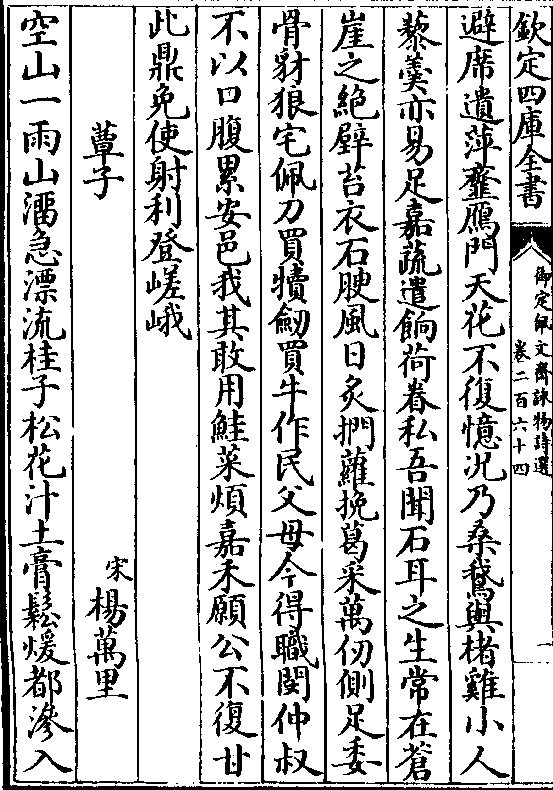 欽定四庫全書
御定佩文齋詠物詩選
卷二百六十四
一
避席遺萍虀鴈門天花不復憶况乃桑鵝與楮雞小人
藜羮亦易足嘉蔬遣餉荷眷私吾聞石耳之生常在蒼
崖之絶壁苔衣石腴風日炙捫蘿挽葛采萬仞側足委
骨豺狼宅佩刀買犢劒買牛作民父母今得職閔仲叔
不以口腹累安邑我其敢用鮭菜煩嘉禾願公不復甘
此鼎免使射利登嵯峨
蕈子
宋楊萬里
空山一雨山溜急漂流桂子松花汁土膏鬆煖都滲入